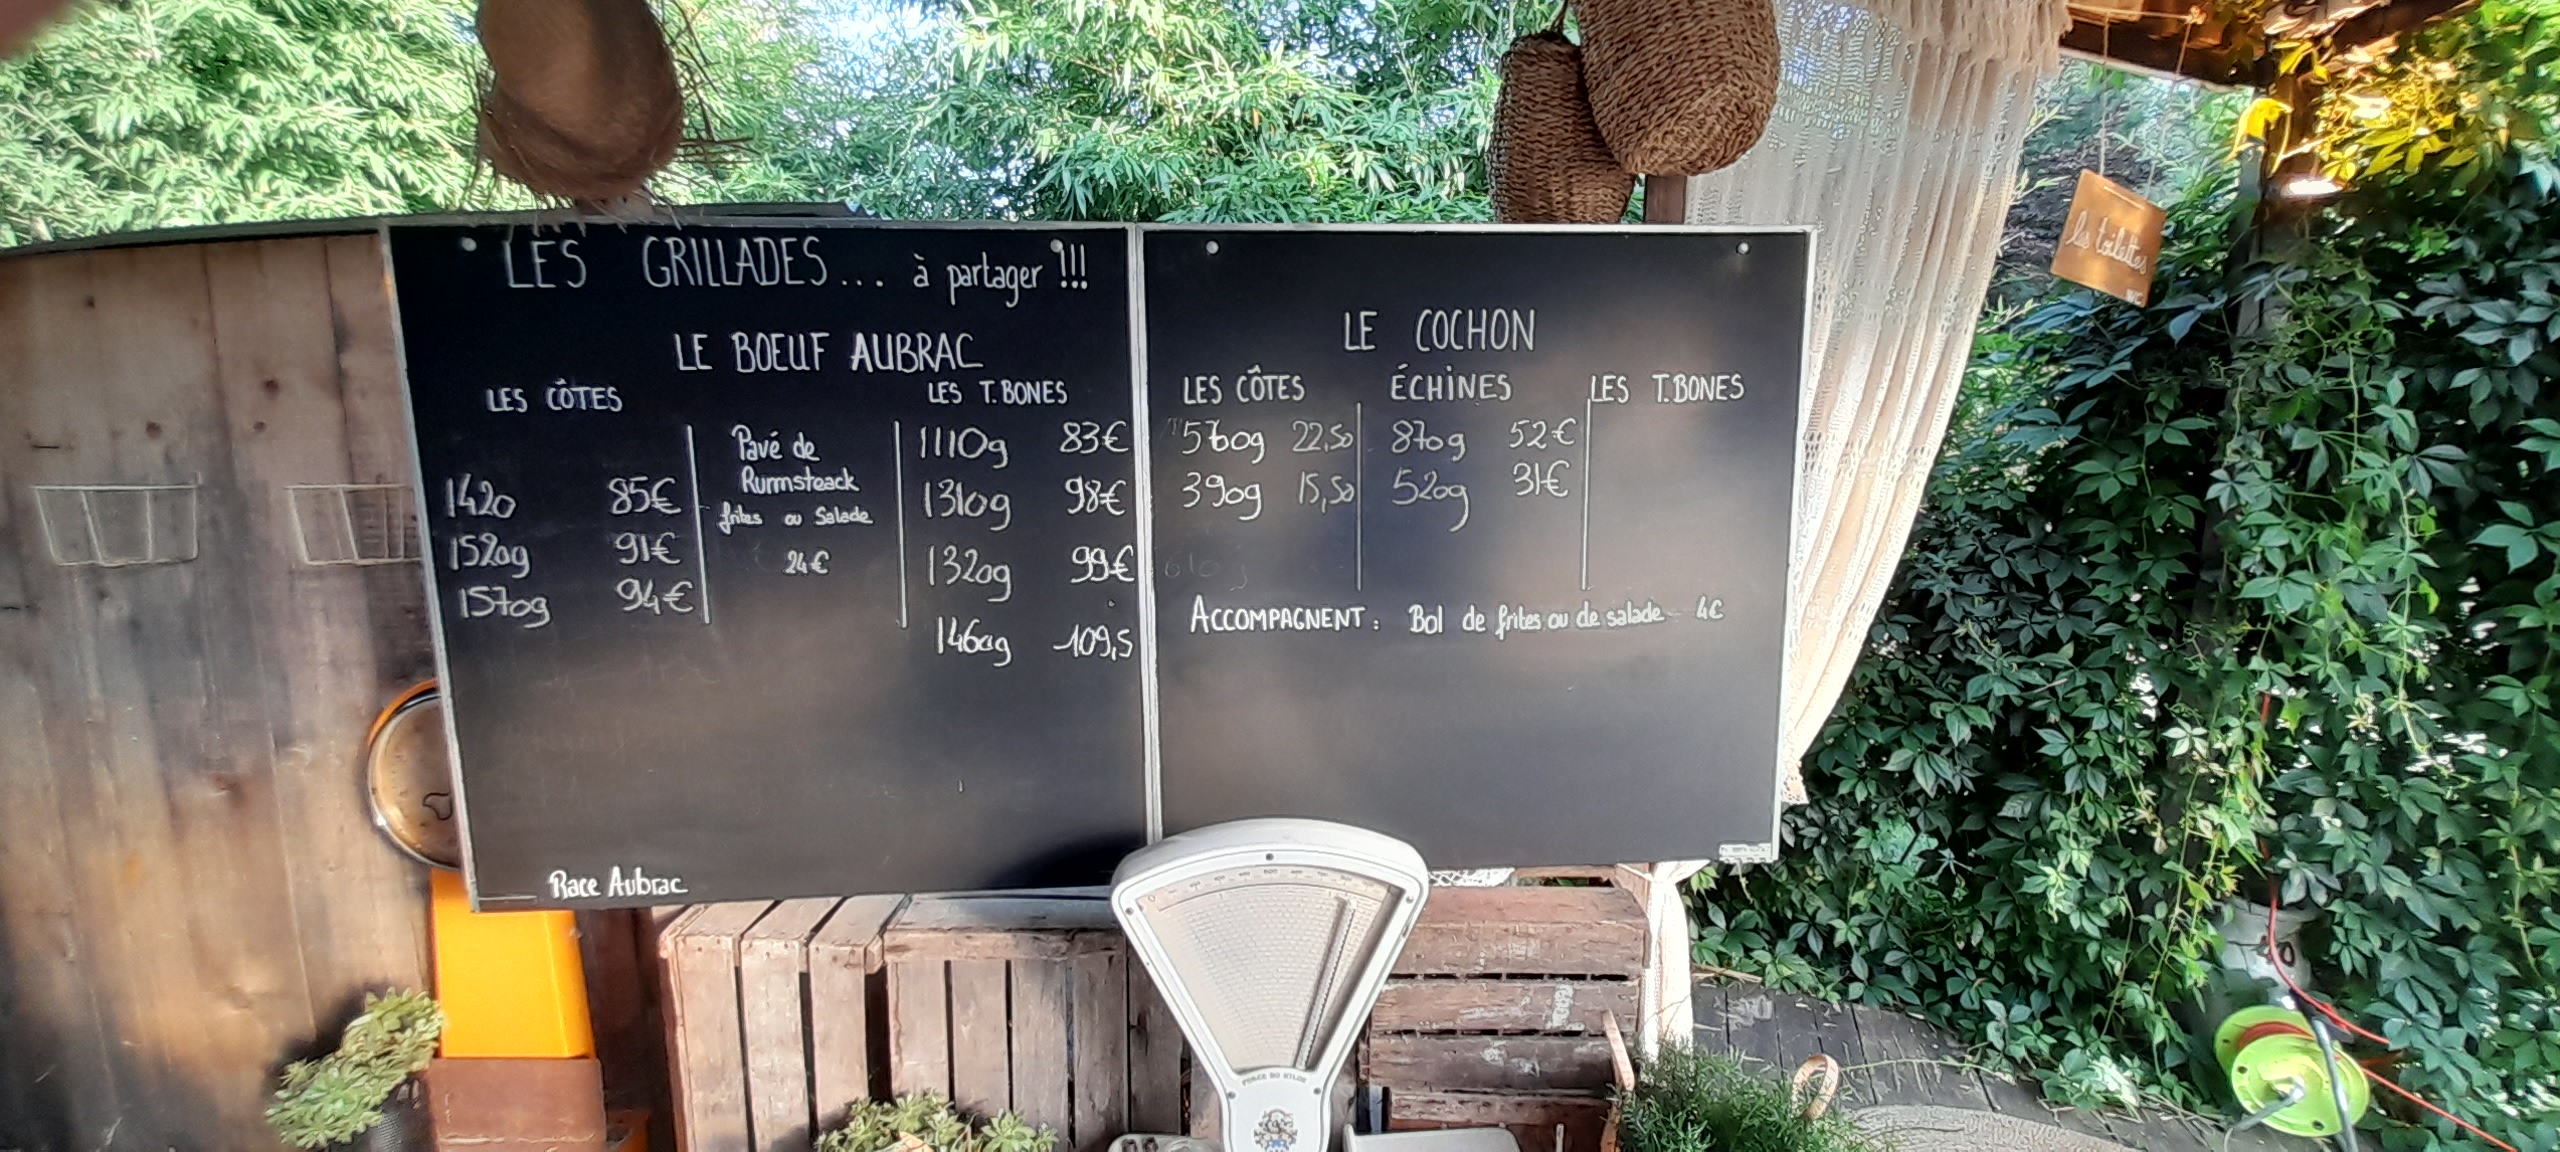 LES GRILLADES... à partager !!!
LE BOEUF AUBRAC
LES CÔTES
1420 85€
1520g 91€
1570g 94€
Pavé de
Rumsteack
frites ou Salade
24€
LES T.BONES
1110g 83€
1310g 98€
1320g 99€
1460g 109,5
Race Aubrac
LE COCHON
LES CÔTES
560g 22,50
390g 15,50
ÉCHINES
870g 52€
520g 31€
LES T.BONES
ACCOMPAGNENT : Bol de frites ou de salade 4€
les toilettes
WC
FORCE 20 KILOS